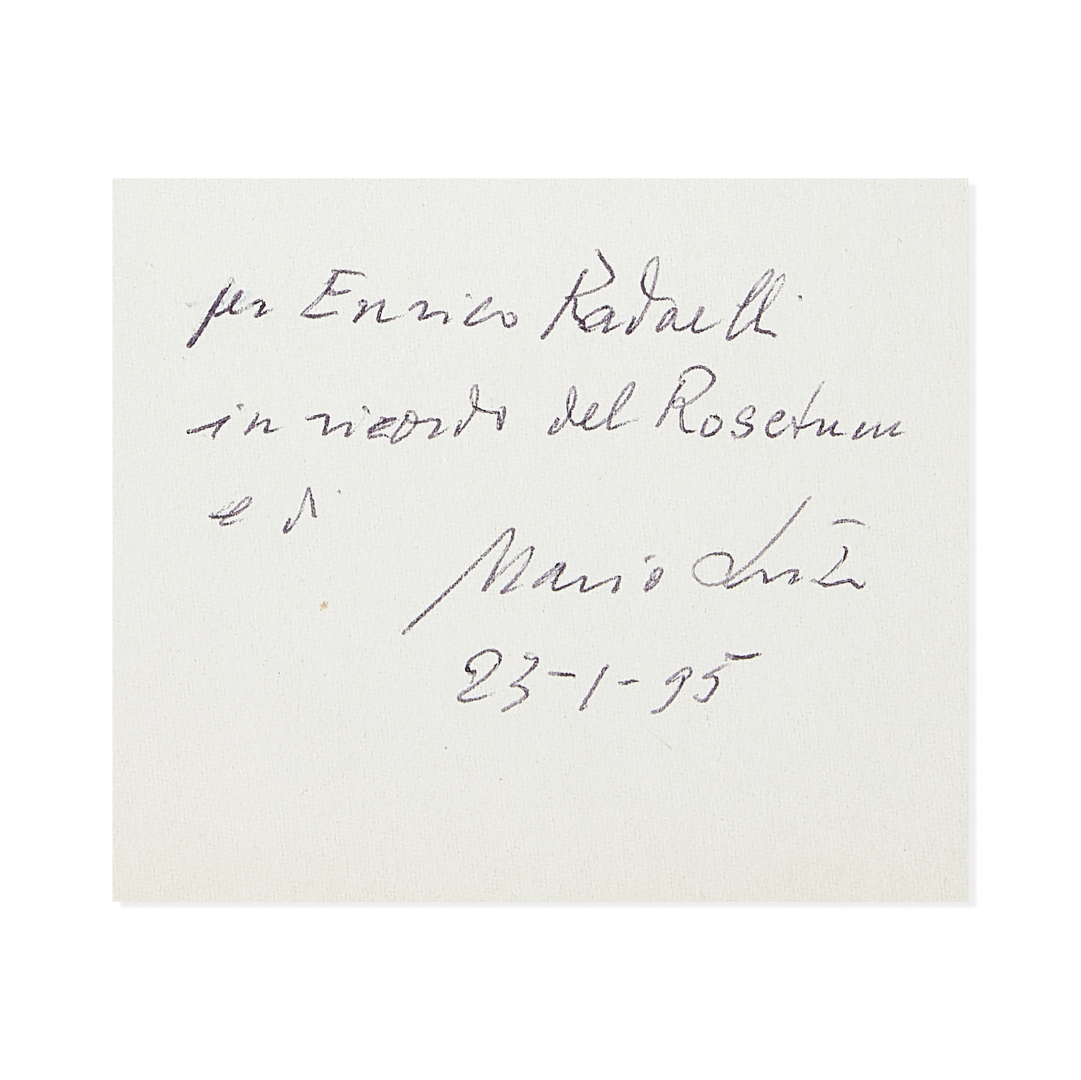 per Enrico Radaelli
in ricordo del Rosetum
e di
Mario Luzi
23-1-95